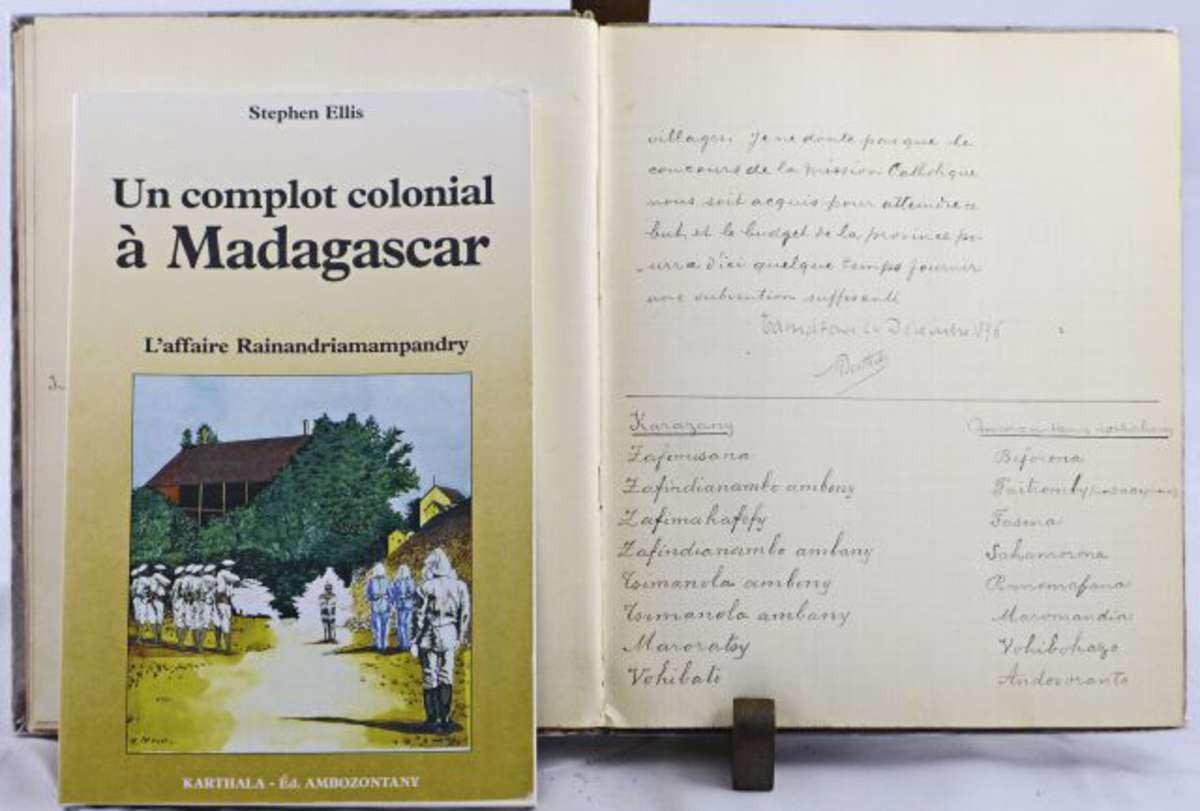 Stephen Ellis
Un complot colonial
à Madagascar
L'affaire Rainandriamampandry
KARTHALA - Éd. AMBOZONTANY
villages. Je ne doute pas que le
concours de la Mission Catholique
nous soit acquis pour atteindre ce
but, et le budget de la province po-
urra d'ici quelque temps fournir
une subvention suffisante
24 Décembre 1896
Karazany
Zafimisana Beforona
Zafindianambo ambony
Zafimahafefy Fasina
Zafindianambo ambany Sahamorona
Tsimanola ambony
Tsimanola ambany Maromandia
Maroratsy Vohibohazo
Vohibato Andovoranto